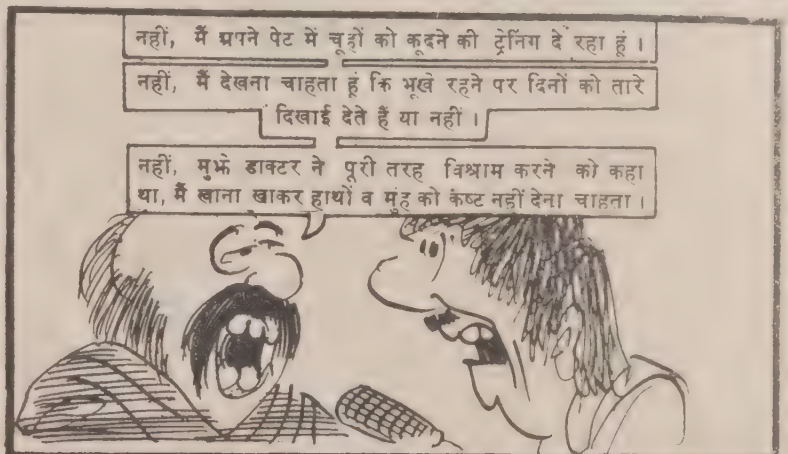 नहीं, मैं अपने पेट में चूहों को कूदने की ट्रेनिंग दे रहा हूं ।
नहीं, मैं देखना चाहता हूं कि भूखे रहने पर दिनों को तारे
दिखाई देते हैं या नहीं ।
नहीं, मुझे डाक्टर ने पूरी तरह विश्राम करने को कहा
था, मैं खाना खाकर हाथों व मुंह को कष्ट नहीं देना चाहता ।